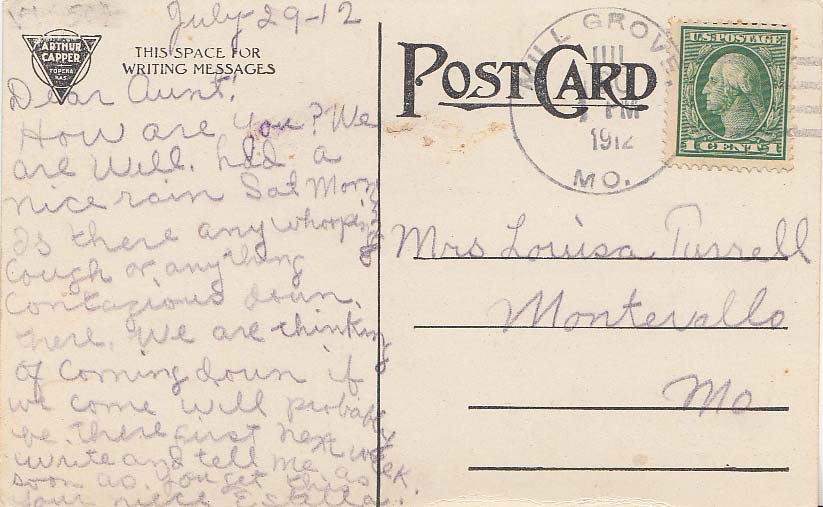 July 29-12
ARTHUR
CAPPER
TOPEKA
KAS.
THIS SPACE FOR
WRITING MESSAGES
Dear Aunt!
How are you? We
are Well. had a
nice rain Sat Morn
Is there any whooping
Cough or anything
Contagious down
there. We are thinking
of Coming down if
we come will probably
be there first next week
write and tell me
soon as you get this as
Your niece Estella.
POST CARD
MILL GROVE,
PM
1912
MO.
U.S. POSTAGE
1 CENT 1
Mrs Louisa Turrell
Montevallo
Mo